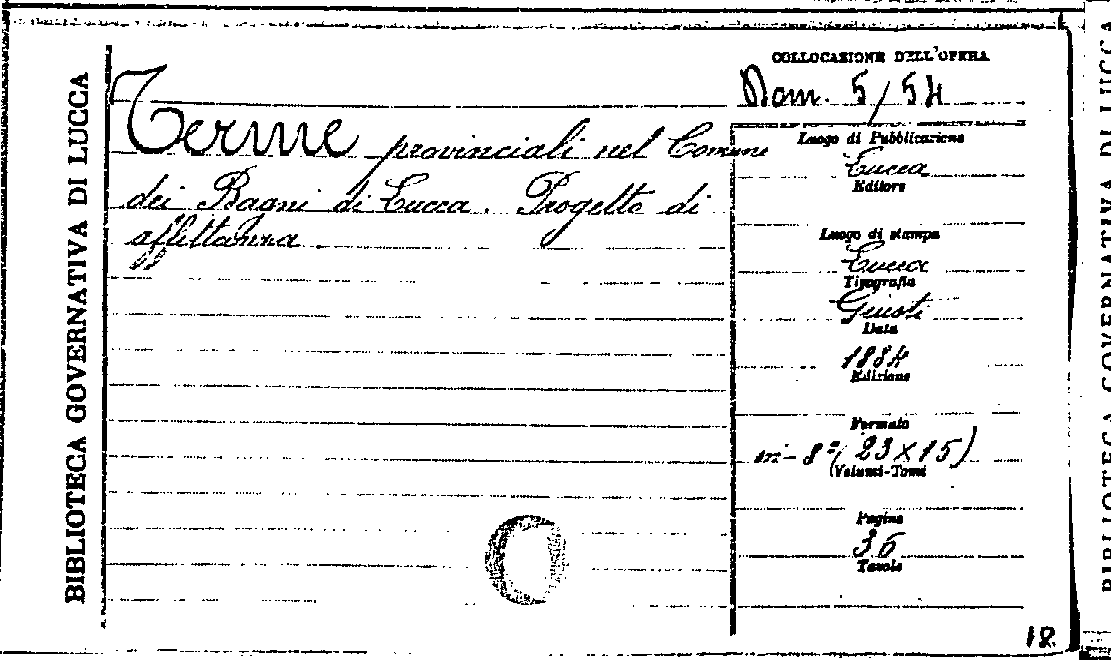 BIBLIOTECA GOVERNATIVA DI LUCCA
Terme provinciali nel Comune
dei Bagni di Lucca. Progetto di
affittanza
COLLOCAZIONE DELL'OPERA
Dom. 5/54
Luogo di Pubblicazione
Lucca
Editore
Luogo di stampa
Lucca
Tipografia
Giusti
Data
1884
Edizione
Formato
in-8º (23×15)
(Volumi-Tomi
Pagine
36
Tavole
18
BIBLIOTECA GOVERNATIVA DI LUCCA